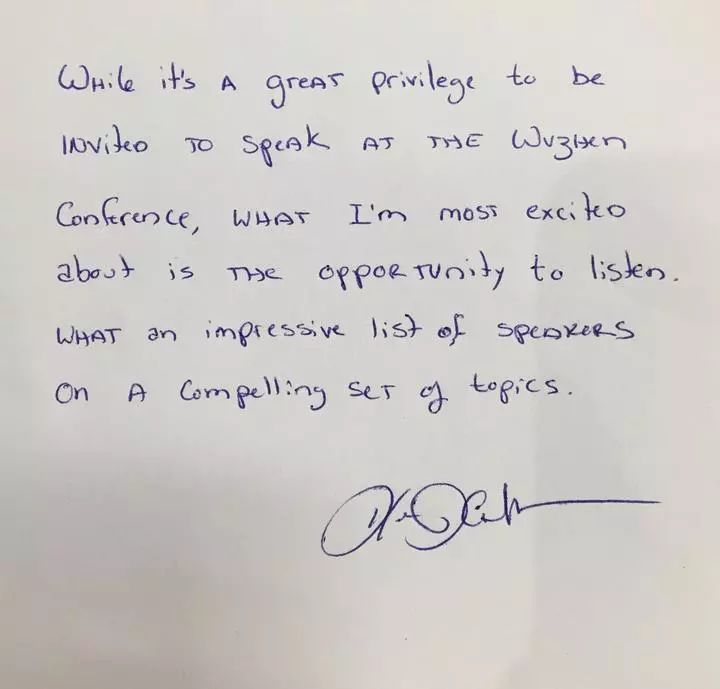 While it's A great privilege to be
INvited TO speak AT THE Wuzhen
Conference, WHAT I'm most excited
about is THE opporTunity to listen.
WHAT an impressive list of speakers
On A Compelling seT of topics.